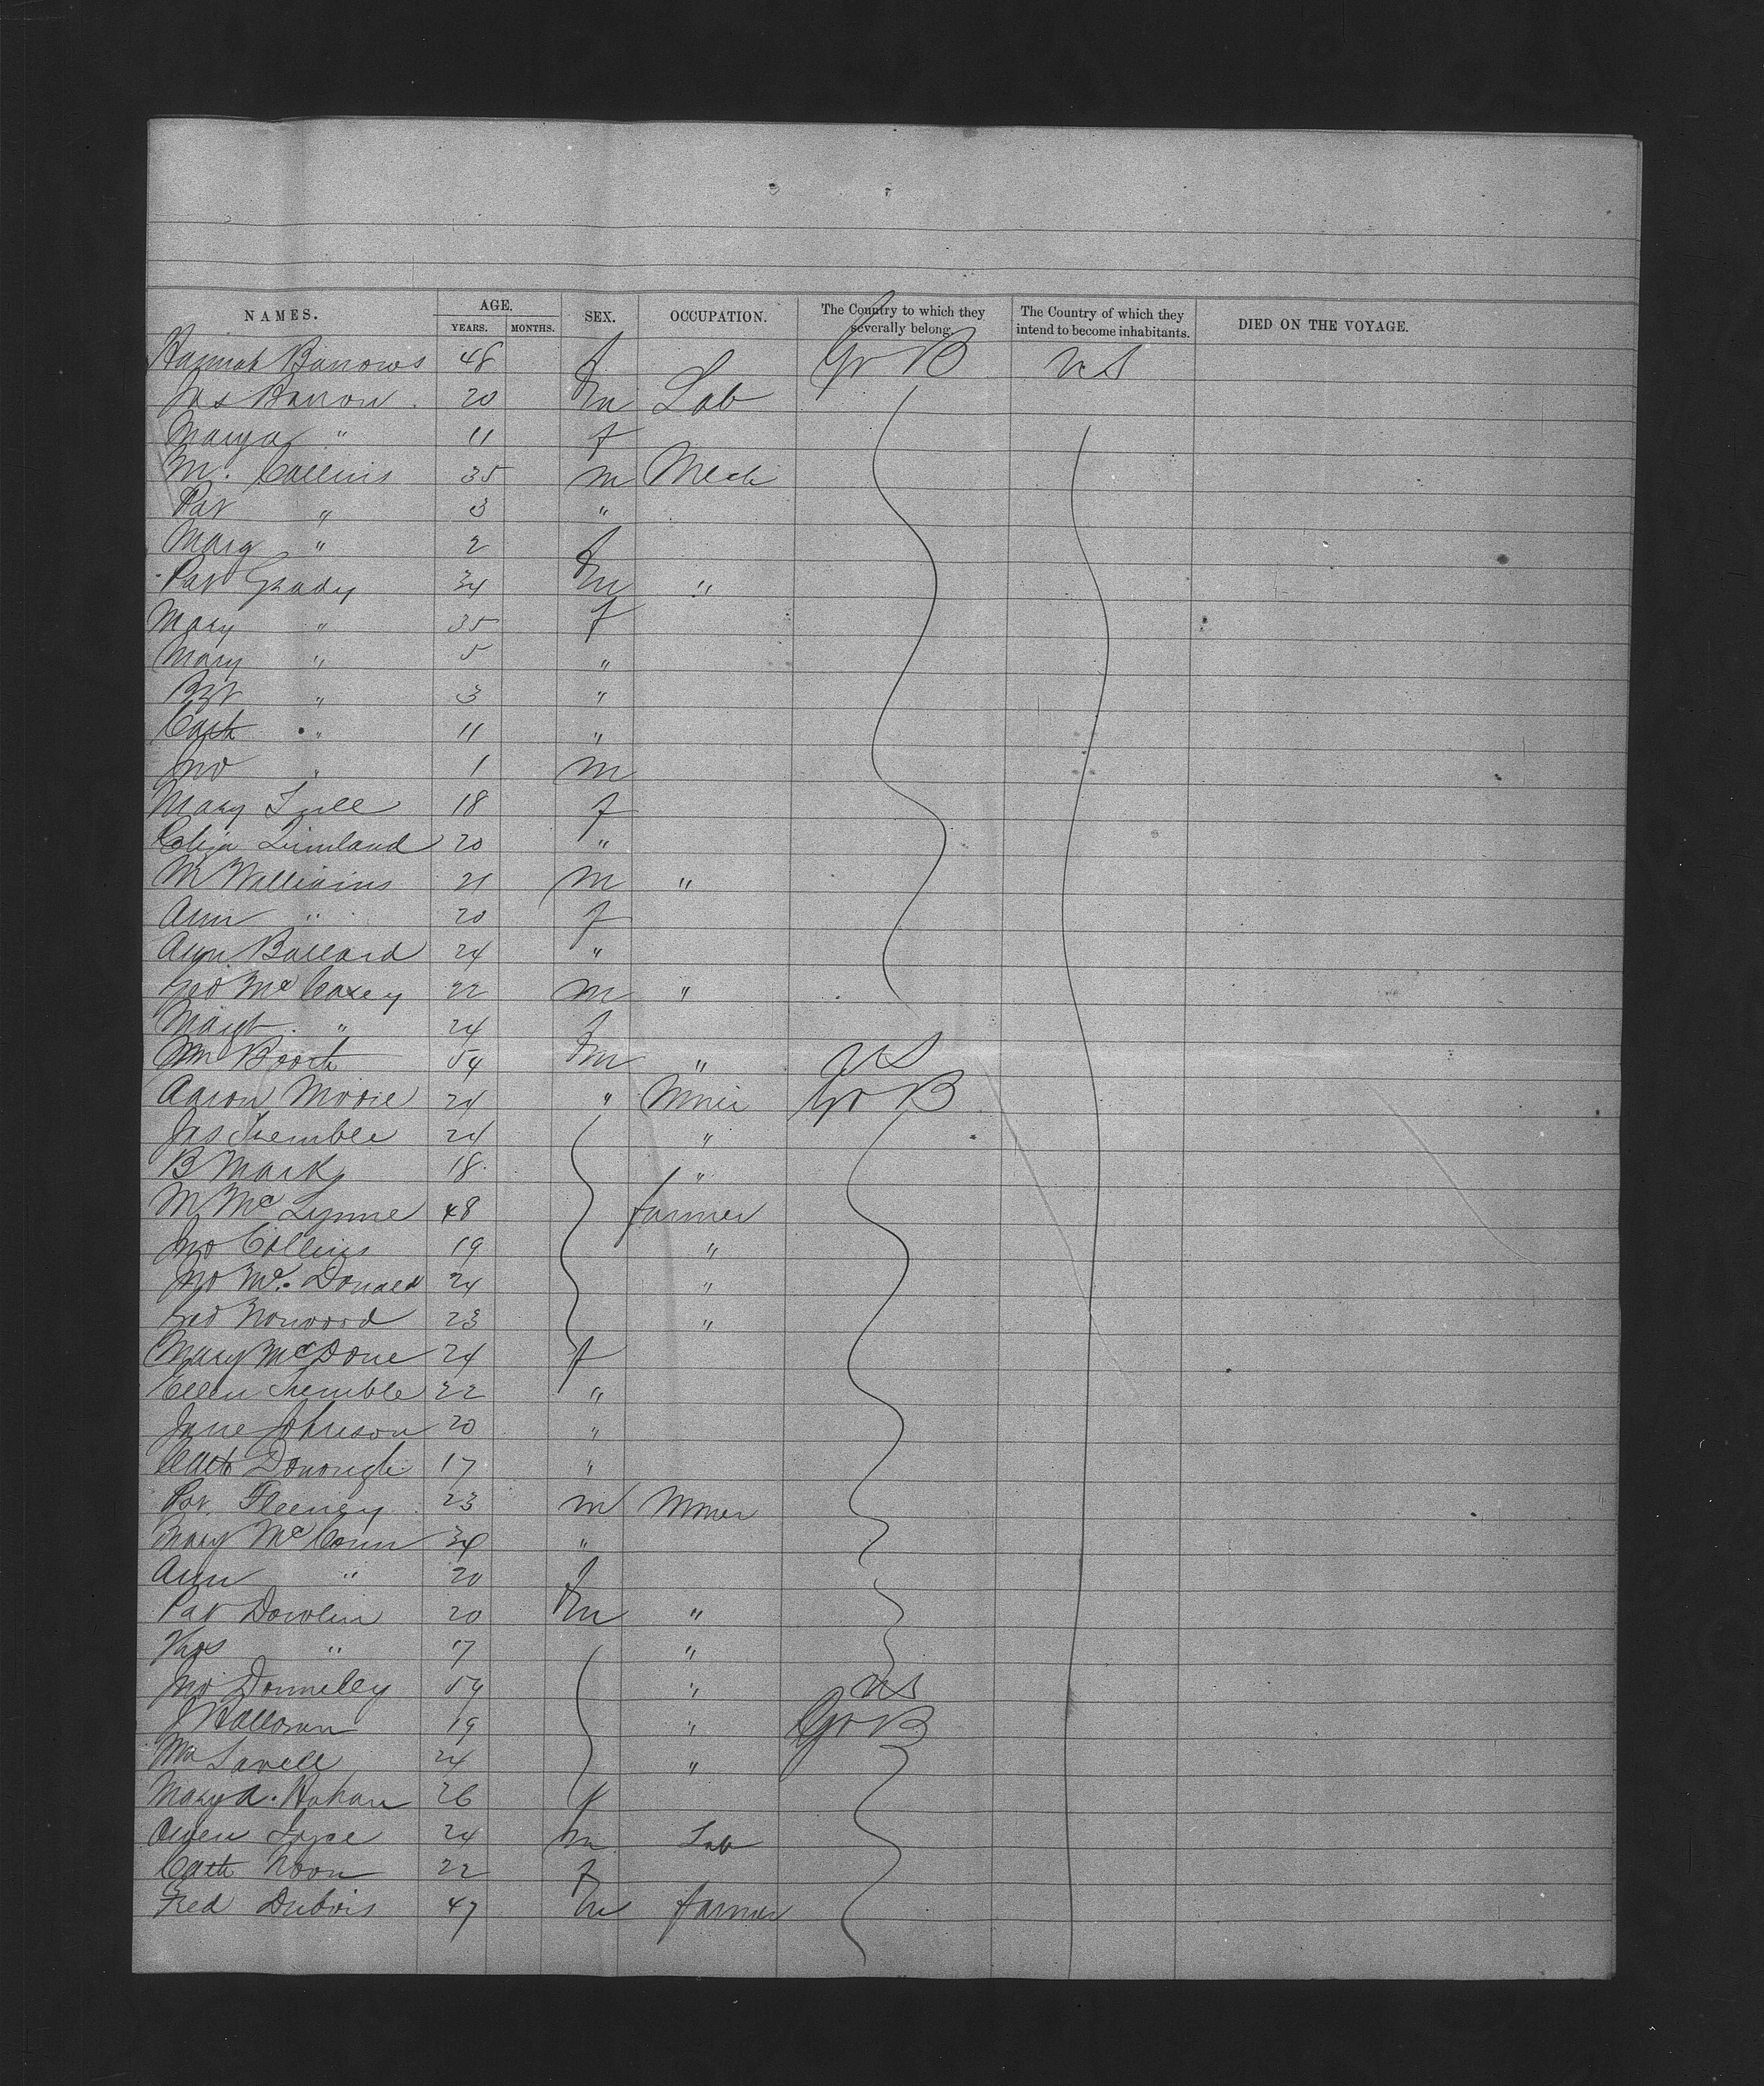 NAMES. AGE. SEX. OCCUPATION. The Country to which they severally belong. The Country of which they intend to become inhabitants. DIED ON THE VOYAGE.
YEARS. MONTHS.
Hannah Barrows 48 f Gr B U S
Jas Barrow 20 m Lab
Mary a " 11 f
M. Collins 35 m Mech
Pat " 3 "
Marg " 2 f
Pat Grady 34 m "
Mary " 35 f
Mary " 5 "
Bgt " 3 "
Cath " 11 "
Jno " 1 m
Mary 18 f
Eliza 20 "
M Williams 21 m "
Ann " 20 f
Ann Ballard 24 "
Geo 22 m "
Margt " 24 f
Wm Booth 54 m " U S
Aaron Moore 24 " Miner Gr B
Jas Tremble 24 "
B Mark 18 "
M Mc Lynne 48 farmer
Jno Collins 19 "
Jno Mc. Donald 24 "
Geo Norwood 23 "
Mary 24 f
Ellen Tremble 22 "
Jane Johnson 20 "
Cath Donough 17 "
Pat 23 m Miner
Mary Mc Conn "
Ann " 20 f
Pat Dowlin 20 m "
Thos " 17 "
Jno Donnelly 54 " U S
J Halloran 19 " Gr B
24 "
Mary A. Hohan 26 f
Owen Joyce 24 m Lab
Cath Noon 22 f
Fred Dubois 47 m farmer